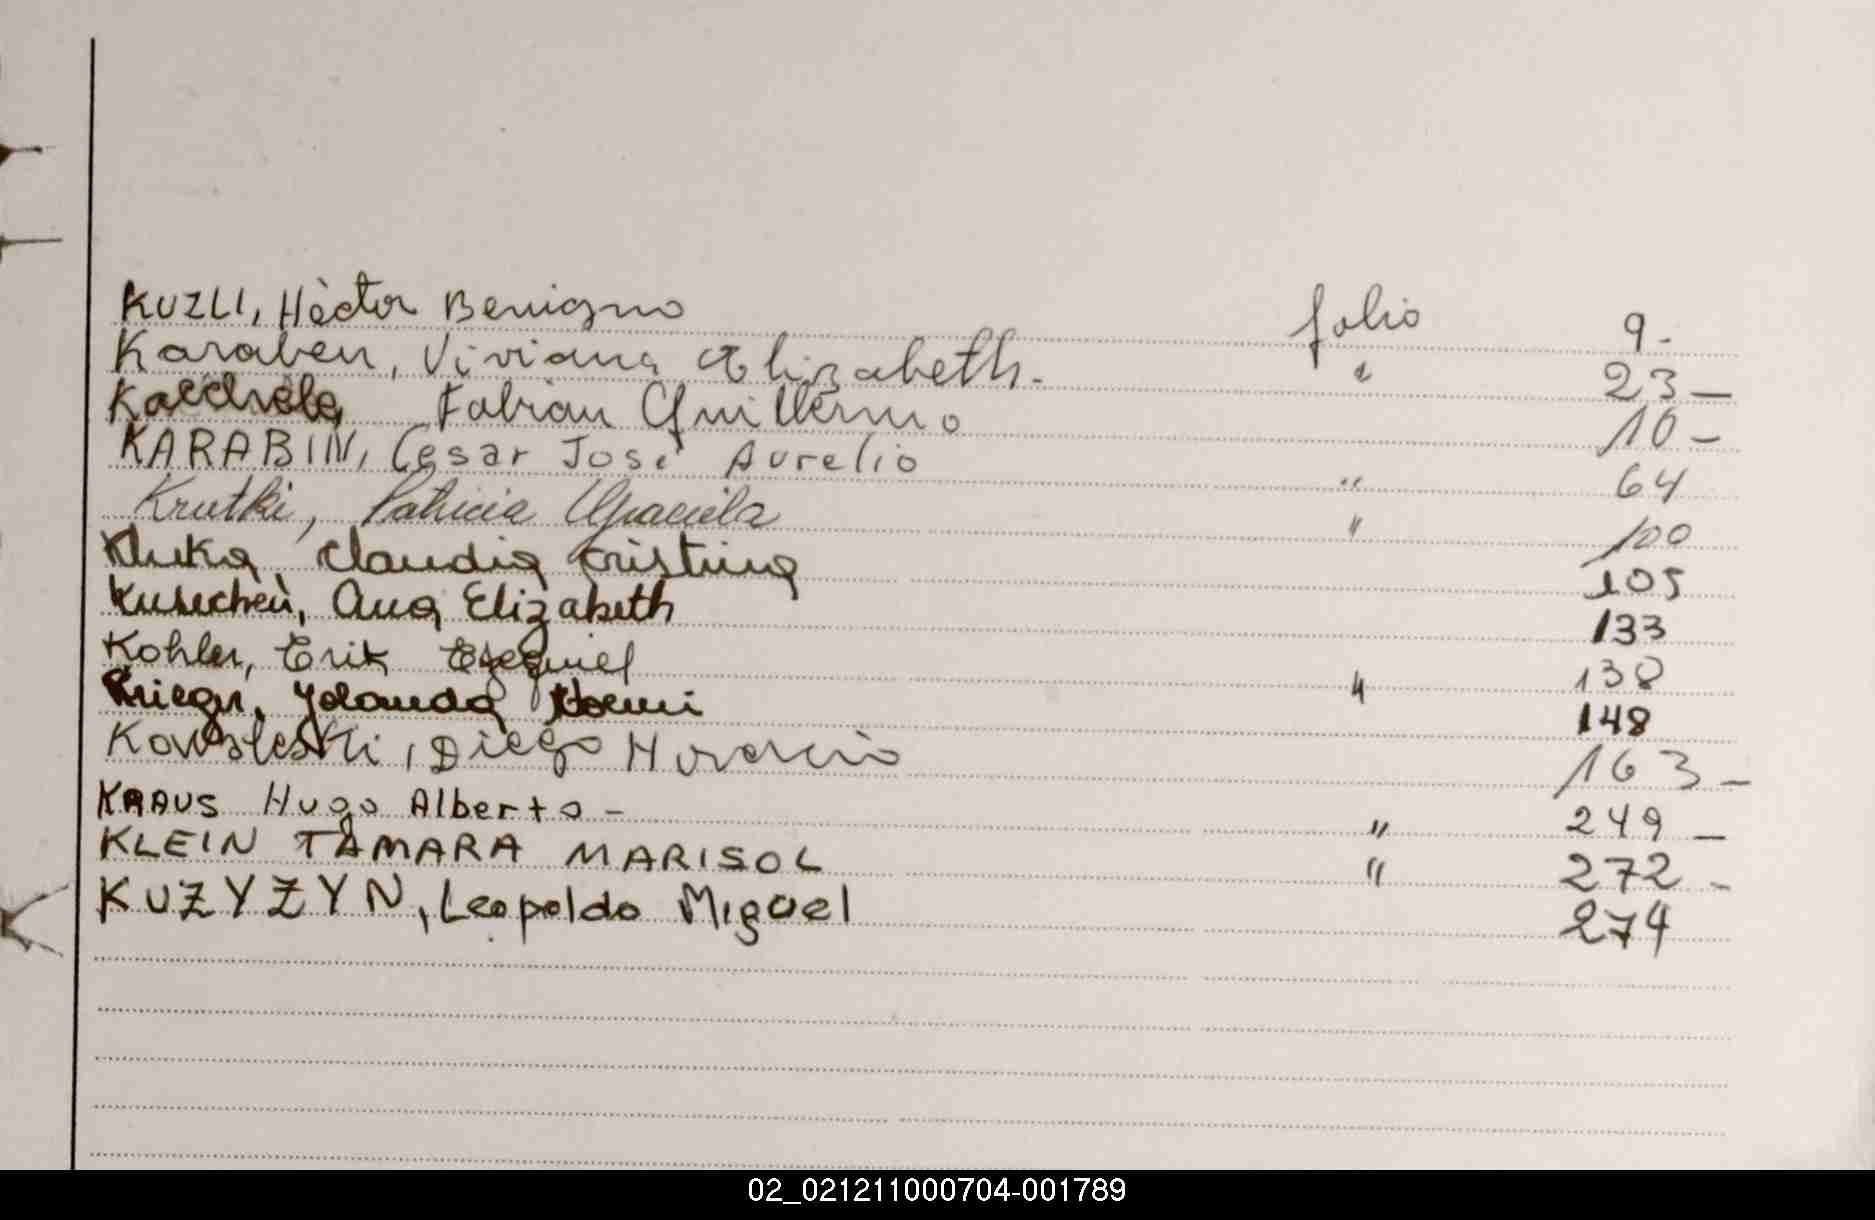 KUZLI, Hèctor Benigno folio 9.-
Karaben, Viviana Elizabeth.- " 23-
Fabian Guillermo 10-
KARABIN, Cesar José Aurelio " 64
Krutki, Patricia Graciela " 100
Kluka Claudia Cristina 105
Ana Elizabeth 133
Kohler, Erik Ezequiel 138
Krieger, Yolanda Noemi " 148
Kowaleski, Diego Horacio 163-
KRAUS Hugo Alberto - " 249-
KLEIN TAMARA MARISOL " 272-
KUZYZYN, Leopoldo Miguel 274
02_021211000704-001789